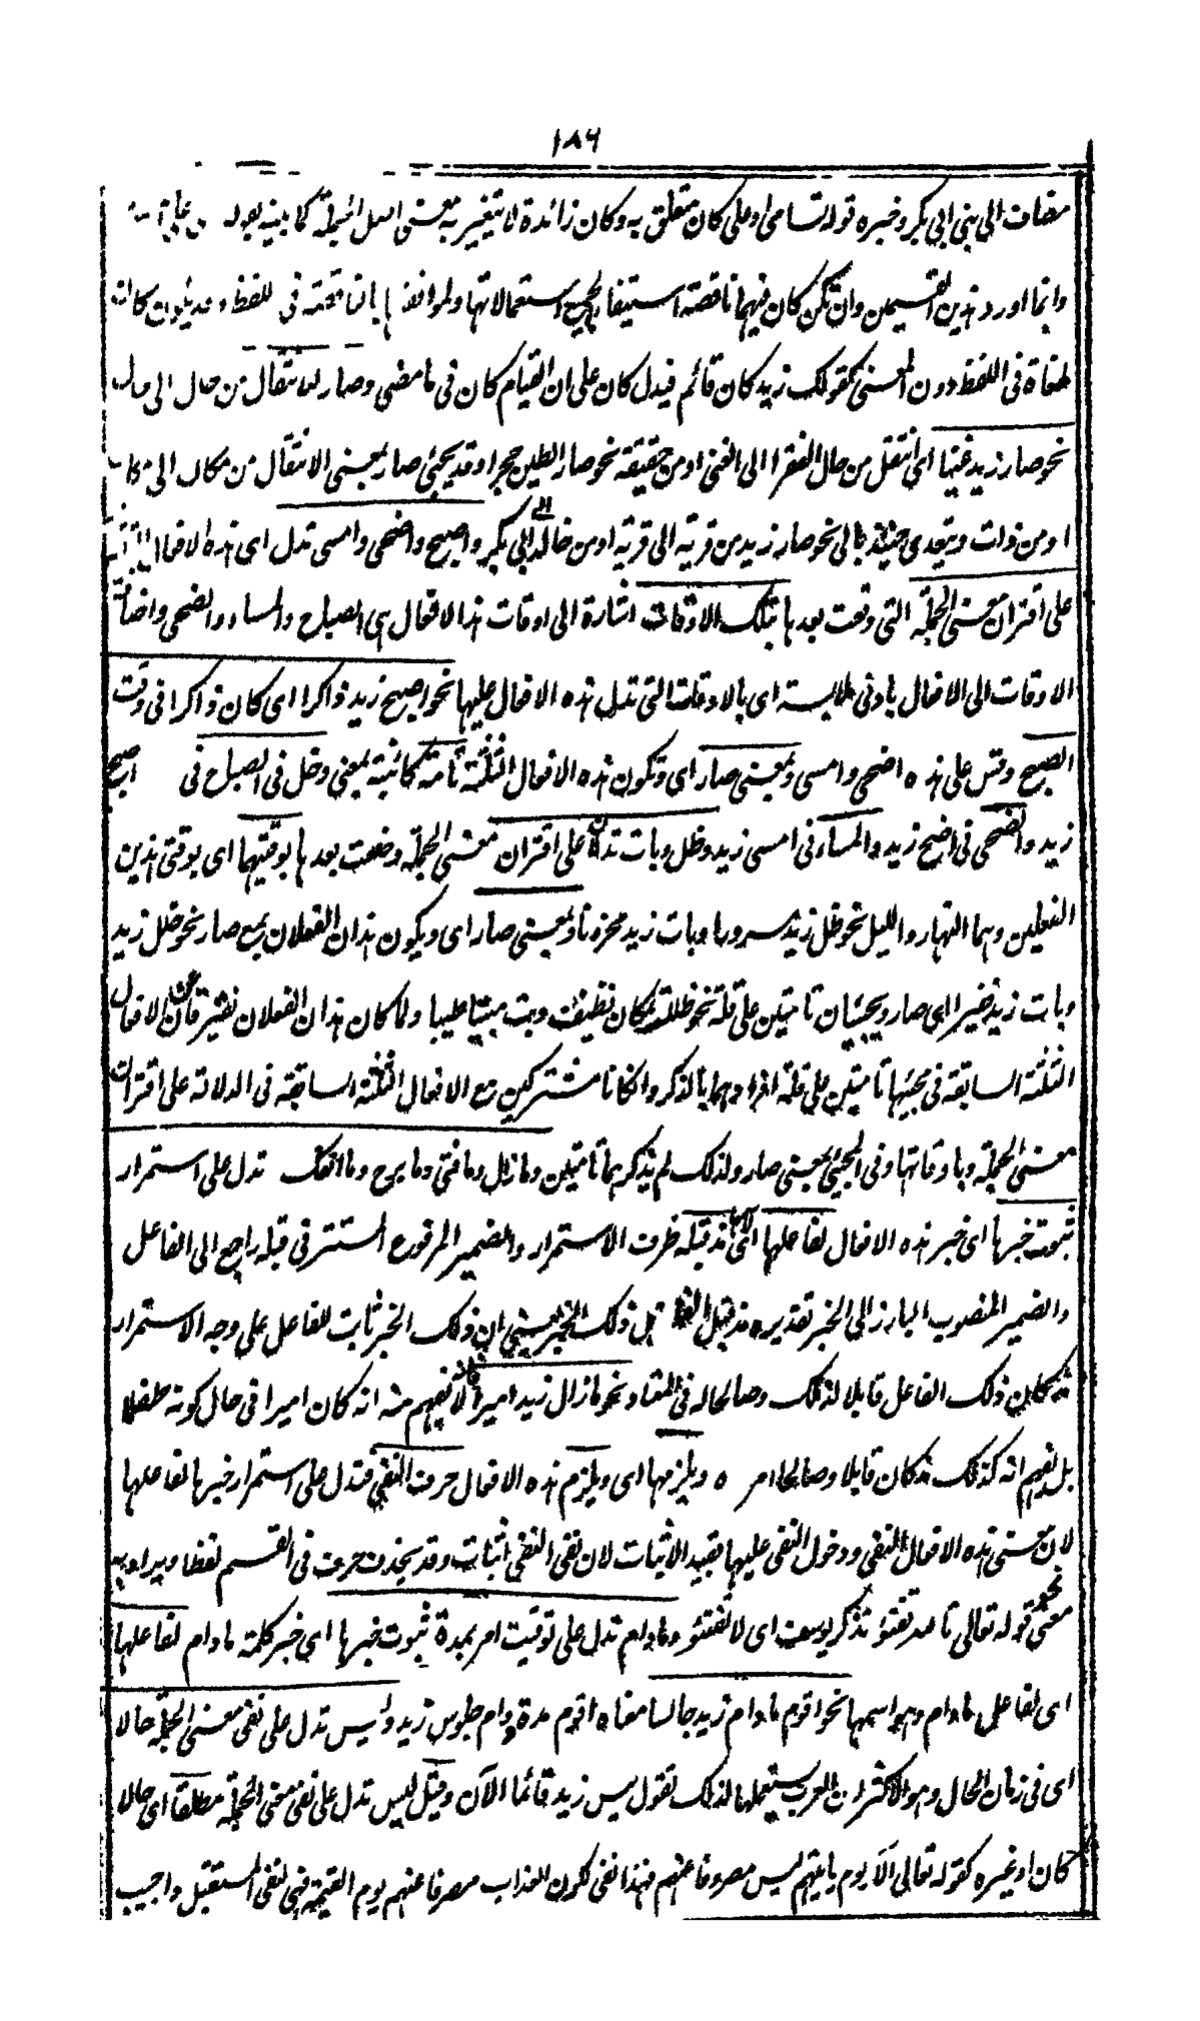 ١٨٦
مضاف الى بنى ابى بكر وخبره قوله تسامى وعلى كان متعلق به وكان زائدة لا تتغير به معنى اصل الجملة كما بينه بقوله
وانما اورد هذين القسمين وان لم تكن كان فيهما ناقصة استيفاء لجميع استعمالاتها ولموافقتها بالناقصة فى اللفظ وقد يكون كان
ملغاة فى اللفظ دون المعنى كقولك زيد كان قائم فيدل كان على ان القيام كان فى ما مضى وصار للانتقال من حال الى حال
نحو صار زيد غنيا اى انتقل من حال الفقر الى الغنى او من حقيقة نحو صار الطين حجرا وقد يجئ صار بمعنى الانتقال من مكان الى مكان
او من ذات ويتعدى حينئذ بالى نحو صار زيد من قرية الى قرية او من خالد الى بكر واصبح واضحى وامسى تدل اى هذه الافعال الثلثة
على اقتران معنى الجملة التى وقعت بعدها بتلك الاوقات اشارة الى اوقات هذا الافعال هى الصباح والمساء والضحى واضافة
الاوقات الى الافعال بادنى ملابسة اى بالاوقات التى تدل هذه الافعال عليها نحو اصبح زيد ذاكرا اى كان ذاكرا فى وقت
الصبح وقس على هذه اضحى وامسى وبمعنى صار اى وتكون هذه الافعال الثلثة تامة كائنة بمعنى دخل فى الصباح فى اصبح
زيد والضحى فى اضحى زيد والمساء فى امسى زيد وظل وبات تدلان على اقتران معنى الجملة وضعت بعدها بوقتيهما اى بوقتى هذين
الفعلين وهما النهار والليل نحو ظل زيد مسرورا وبات زيد محزونا وبمعنى صار اى ويكون هذان الفعلان بمع صار نحو ظل زيد
وبات زيد خيرا اى صار ويجيئان تامتين على قلة نحو ظللت بمكان نظيف وبت مبيتا طيبا ولما كان هذان الفعلان يفترقان عن الافعال
الثلثة السابقة فى مجيئها تامتين على قلة افردهما بالذكر وان كانا مشتركين مع الافعال الثلثة السابقة فى الدلالة على اقتران
معنى الجملة وباوقاتها وفى المجئ بمعنى صار ولذلك لم يذكرهما تامتين وما زال وما فتئ وما برح وما انفك تدل على استمرار
ثبوت خبرها اى خبر هذه الافعال لفاعلها اى لاسمها مذ قبله ظرف الاستمرار والضمير المرفوع المستتر فى قبله راجع الى الفاعل
والضمير المنصوب البارز الى الخبر تقديره مذ قبل الفاعل ذلك الخبر يعنى ان ذلك الخبر ثابت للفاعل على وجه الاستمرار
مذ كان ذلك الفاعل قابلا لذلك وصالحا له فى المعتاد نحو ما زال زيد اميرا فانه لا يفهم منه انه كان اميرا فى حال كونه طفلا
بل يفهم انه كذلك مذ كان قابلا وصالحا للامر ه ويلزمها اى ويلزم هذه الافعال حرف النفى فتدل على استمرار خبرها لفاعلها
لان معنى هذه الافعال النفى ودخول النفى عليها يفيد الاثبات لان نفى النفى اثبات وقد يحذف حرف فى القسم لفظا ويراد به
معنى نحو قوله تعالى تالله تفتؤ تذكر يوسف اى لا تفتئو وما دام تدل على توقيت امر بمدة ثبوت خبرها اى خبر كلمة ما دام لفاعلها
اى لفاعل ما دام وهو اسمها نحو اقوم ما دام زيد جالسا معناه اقوم مدة دوام جلوس زيد وليس تدل على نفى معنى الجملة حالا
اى فى زمان الحال وهو الاكثر ان العرب يستعملها لذلك تقول ليس زيد قائما الآن وقيل ليس تدل على نفى معنى الجملة مطلقا اى حالا
كان او غيره كقوله تعالى الا يوم ياتيهم ليس مصروفا عنهم فهذا نفى لكون العذاب مصرفا عنهم يوم القيمة فهى لنفى المستقبل واجيب